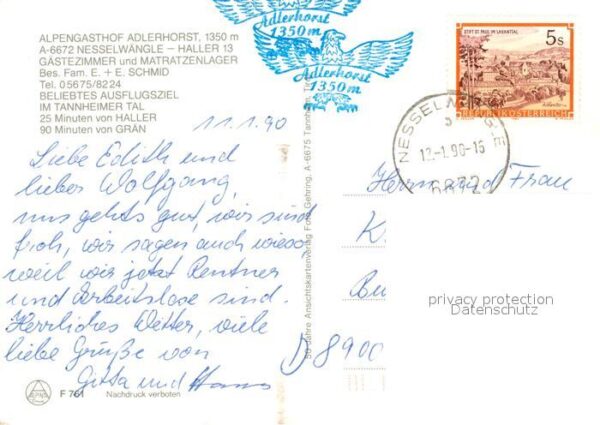 ALPENGASTHOF ADLERHORST, 1350 m
A-6672 NESSELWÄNGLE – HALLER 13
GÄSTEZIMMER und MATRATZENLAGER
Bes. Fam. E. + E. SCHMID
Tel. 05675/8224
BELIEBTES AUSFLUGSZIEL
IM TANNHEIMER TAL
25 Minuten von HALLER
90 Minuten von GRÄN
11.1.90
Liebe Edith und
lieber Wolfgang,
uns gehts gut, wir sind
froh, wir sagen auch wieso,
weil wir jetzt Rentner
und Arbeitslose sind.
Herrliches Wetter, viele
liebe Grüße von
Gitta und Hans
F 761
Nachdruck verboten
Adlerhorst
1350 m
Adlerhorst
1350 m
Jahre Ansichtskartenverlag Foto Gehring, A-6675 Tannheim,
STIFT ST. PAUL IM LAVANTTAL
5s
REPUBLIK ÖSTERREICH
NESSELWÄNGLE
12.-1.90-15
6672
Herrn und Frau
K
Bu
D 8900
privacy protection
Datenschutz